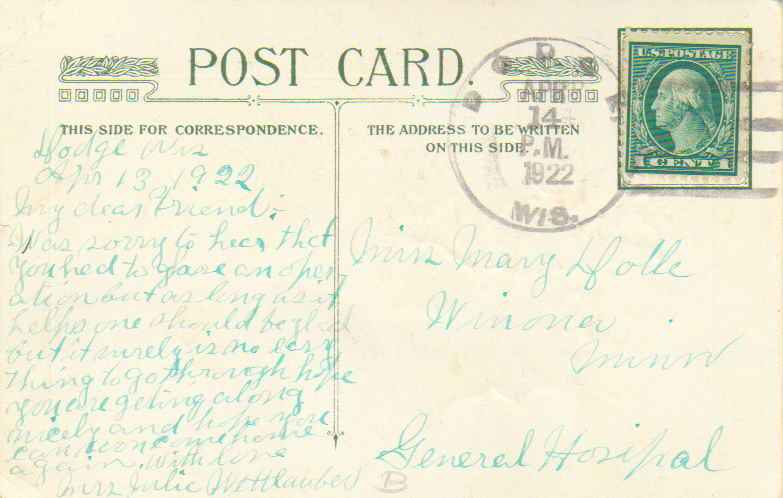 POST CARD.
THIS SIDE FOR CORRESPONDENCE.
THE ADDRESS TO BE WRITTEN
ON THIS SIDE
Dodge Wis
Apr 13, 1922
My dear Friend:-
Was sorry to hear that
you hed to gave an oper
ation but as long as it
helps one should be glad
but it surely is no easy
thing to go through hope
you are geting along
nicely and hope you
can soon come home
again. With love
Mrs Julie
Miss Mary Dolle
Winona
Minn
General Hosipal
B
DODGE
APR
14
P.M.
1922
WIS.
U.S. POSTAGE
1 CENT 1